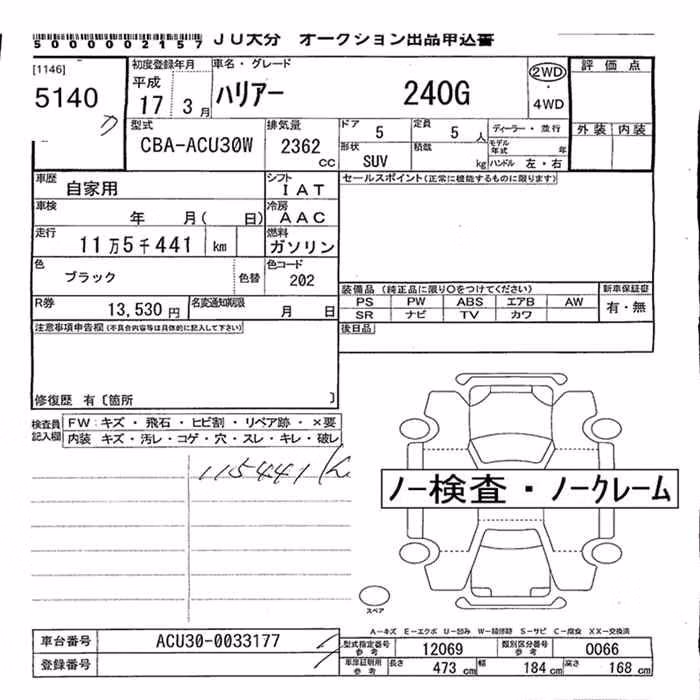 5000002157 JU大分 オークション出品申込書
[1146] 5140
初度登録年月 平成 17 3月
車名・グレード ハリアー 240G
2WD ・ 4WD
評価点
外装 内装
型式 CBA-ACU30W
排気量 2362 cc
ドア 5 定員 5人
形状 SUV 積載 kg
ディーラー・並行
モデル年式 年
ハンドル 左・右
車歴 自家用
シフト IAT
セールスポイント(正常に機能するものに限ります)
車検 年 月( 日)
冷房 AAC
走行 11万5千441 km
燃料 ガソリン
色 ブラック 色替
色コード 202
R券 13,530円
名変通知期限 月 日
装備品(純正品に限り○をつけてください) 新車保証書
PS PW ABS エアB AW
SR ナビ TV カワ
有・無
後日品
注意事項申告欄(不具合内容等は具体的に記入して下さい)
修復歴 有〔箇所 〕
検査員記入欄
FW:キズ・飛石・ヒビ割・リペア跡・×要
内装 キズ・汚レ・コゲ・穴・スレ・キレ・破レ
115441 K
ノー検査・ノークレーム
スペア
A-キズ E-エクボ U-凹み W-補修跡 S-サビ C-腐食 XX-交換済
車台番号 ACU30-0033177
登録番号
型式指定番号 参考 12069
類別区分番号 参考 0066
車庫証明用 参考 長さ 473cm 幅 184cm 高さ 168cm